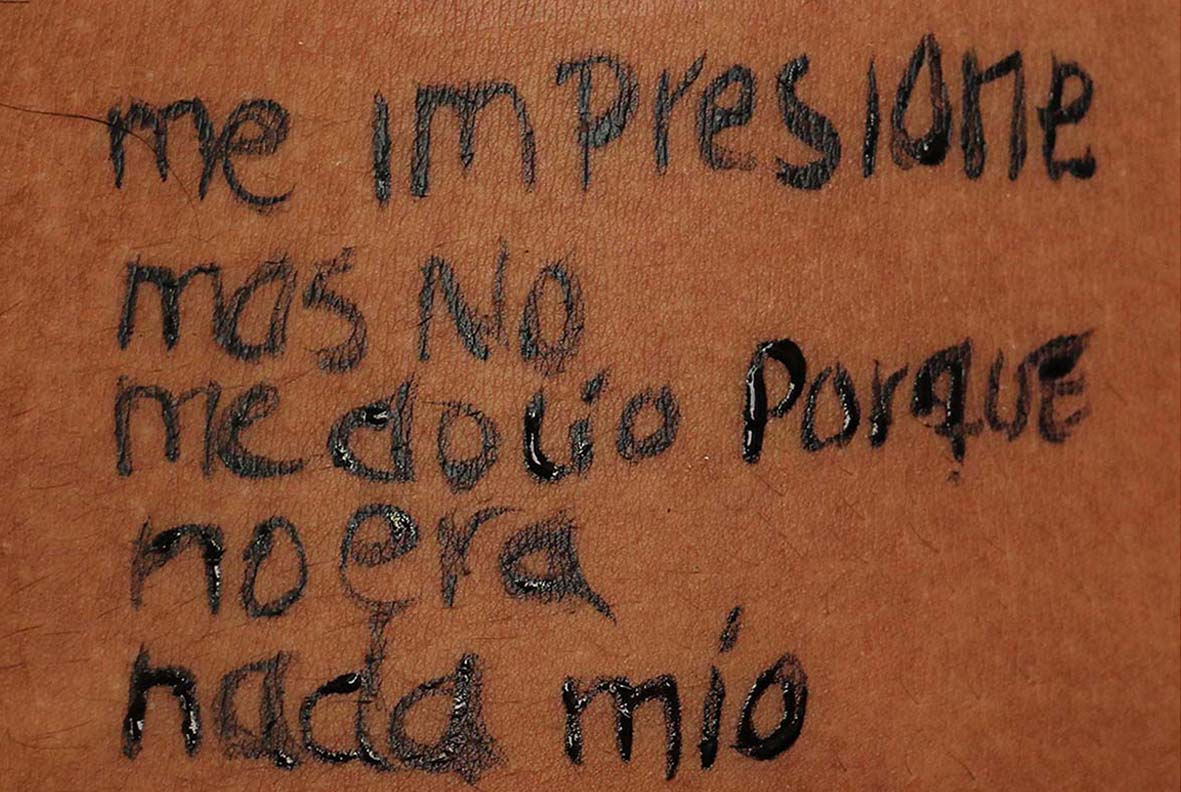 me impresione
mas No
me dolio Porque
no era
nada mío